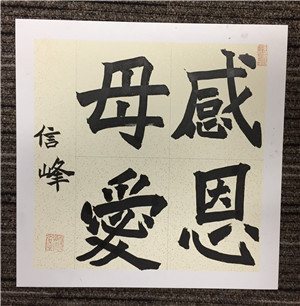 感恩
母愛
信峰